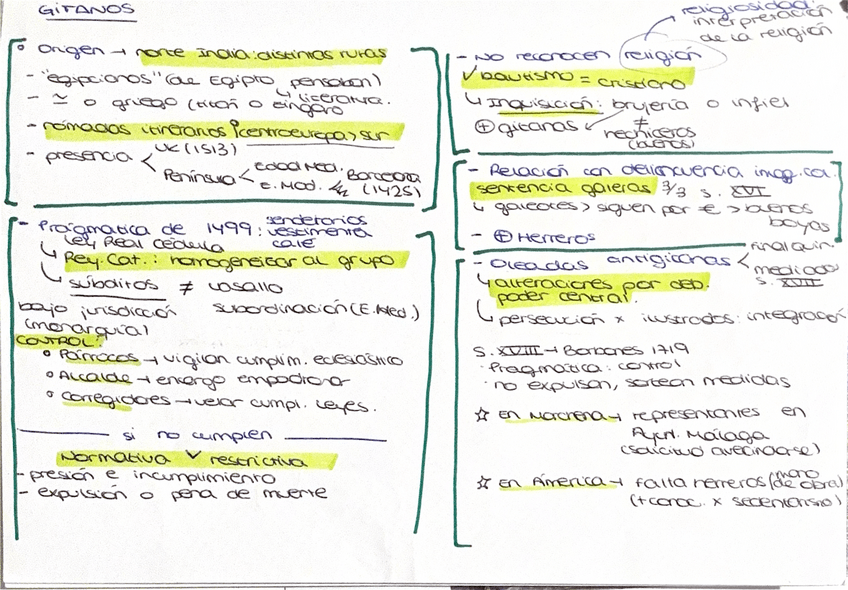 GITANOS
Origen → norte India: distintas rutas
- "egipcianos" (de Egipto pensaban)
↳ literatura.
- ≃ o griego (titán o cíngaro
- nómadas itinerarios (centroeuropa) sur
- presencia < UK (1513)
Península < Edad Med. Barcelona
E. Mod. (1425)
- Pragmática de 1499: sendetarios
vestimenta
calé
↳ Ley Real Cédula
↳ Rey. Cat.: homogeneizar al grupo
↳ súbditos ≠ vasallo
bajo jurisdicción subordinación (E. Med.)
(monarquía)
CONTROL:
° Párrocos → vigilan cumplim. eclesiástico
° Alcalde → encargo empadronar
° Corregidores → velar cumpl. leyes.
si no cumplen
Normativa restrictiva
- presión e incumplimiento
- expulsión o pena de muerte
religiosidad:
interpretación
de la religión
- No reconocen religión
✓ bautismo = cristiano
↳ Inquisición: brujería o infiel
⊕ gitanas ≠
hechiceros
(buenos)
- Relación con delincuencia imag. col.
sentencia galeras 3/3 s. XVI
↳ galeotes > siguen por € > buenas
boyas
- ⊕ Herreros
- Oleadas antigitanas < final quin.
mediado
s. XVII
↳ alteraciones por deb.
poder central.
↳ persecución x ilustrados: integración
s. XVIII → Borbones 1719
· Pragmática: control
· no expulsan, sortean medidas
☆ en Marchena → representantes en
Aynt. Málaga
(solicitud avecindarse)
☆ en América → falta herreros (mano
de obra)
(+ conoc. x sedentarismo)